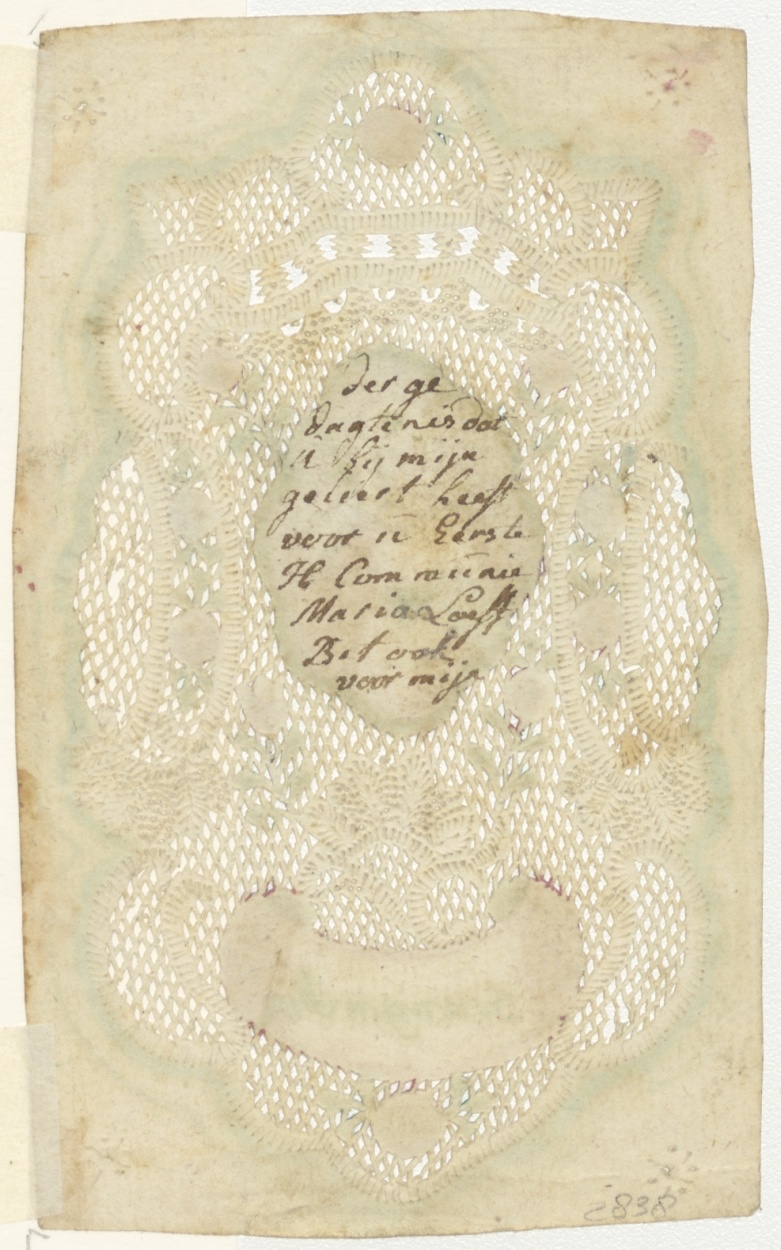 Der ge
dagtenis dat
ü bij mijn
geliert heeft
voor ü Eerste
H Commünie
Maria Loeff
Bit ook
voor mijn
2838